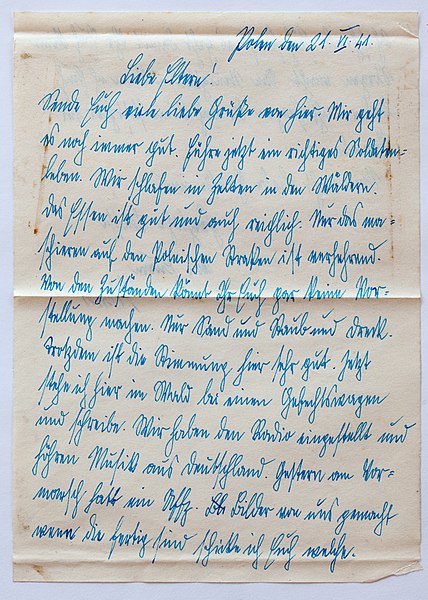 Polen den 21. VI. 41.
Liebe Eltern!
Sende Euch viele liebe Grüße von hier. Mir geht
es noch immer gut. Führe jetzt ein richtiges Soldaten=
leben. Wir schlafen in Zelten in den Wäldern.
Das Essen ist gut und auch reichlich. Nur das ma=
schieren auf den Polnischen Straßen ist verheerend.
Von den Zuständen könnt Ihr Euch gar keine Vor=
stellung machen. Nur Sand und Staub und Dreck.
Trotzdem ist die Stimmung hier sehr gut. Jetzt
stehe ich hier im Wald bei einen Gefechtswagen
und schreibe. Wir haben den Radio eingestellt und
hören Musik aus Deutschland. Gestern am Vor=
marsch hatt ein Uffz. Bilder von uns gemacht
wenn die fertig sind schicke ich Euch welche.